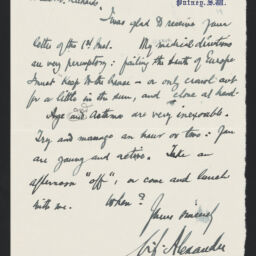 Putney, S.W.
I was glad to receive your
letter of the 1st inst. My medical directions
are very peremptory: failing the South of Europe
I must keep to the house — or only crawl out
for a little in the sun, and close at hand.
Age and Asthma are very inexorable.
Try and manage an hour or two: You
are young and active. Take an
afternoon "off", or come and lunch
with me. When?
Yours sincerely
Alexander